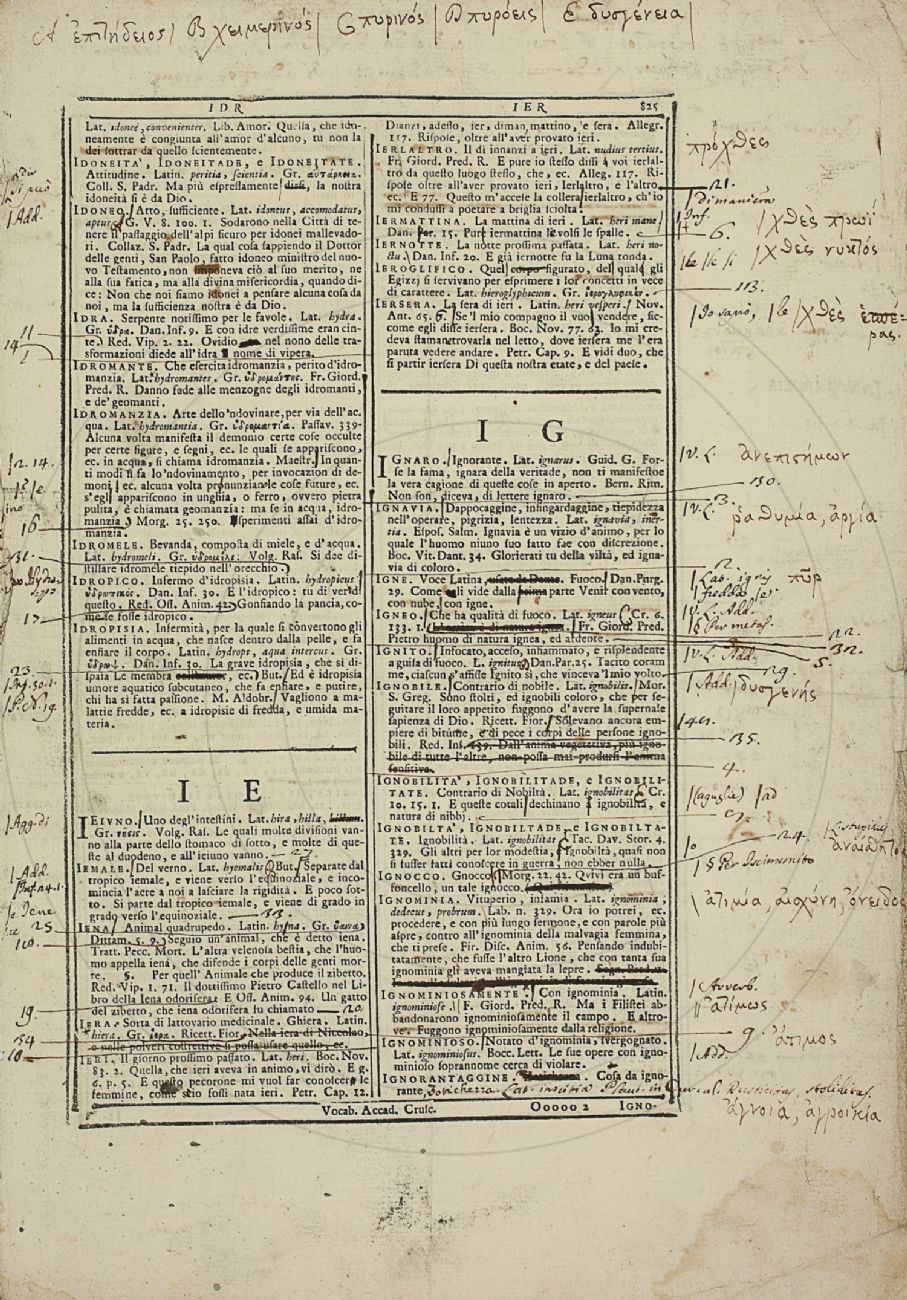 A ἐπιτήδειος| B χειμερινός| C πυρινός| D πυρόεις| E δυσγένεια|
IDR
IER 825
Lat. idoneè, convenienter. Lib. Amor. Quella, che ido-
neamente è congiunta all'amor d'alcuno, tu non la
dei sottrar da quello scientemente.
IDONEITA', IDONEITADE, e IDONEITATE.
Attitudine. Latin. peritia, scientia. Gr. αὐτάρκεια.
Coll. S. Padr. Ma più espressamente disse, la nostra
idoneità si è da Dio.
IDONEO. Atto, sufficiente. Lat. idoneus, accomodatus,
aptus. G. V. 8. 100. 1. Sodarono nella Città di te-
nere il passaggio dell'alpi sicuro per idonei mallevado-
ri. Collaz. S. Padr. La qual cosa sappiendo il Dottor
delle genti, San Paolo, fatto idoneo ministro del nuo-
vo Testamento, non imponeva ciò al suo merito, ne
alla sua fatica, ma alla divina misericordia, quando di-
ce: Non che noi siamo idonei a pensare alcuna cosa da
noi, ma la sufficienza nostra è da Dio.
IDRA. Serpente notissimo per le favole. Lat. hydra.
Gr. ὕδρα. Dan. Inf. 9. E con idre verdissime eran cin-
te. Red. Vip. 2. 22. Ovidio nel nono delle tra-
sformazioni diede all'idra nome di vipera.
IDROMANTE. Che esercita idromanzia, perito d'idro-
manzia. Lat. hydromantes. Gr. ὑδρομαντος. Fr. Giord.
Pred. R. Danno fede alle menzogne degli idromanti,
e de' geomanti.
IDROMANZIA. Arte dello 'ndovinare, per via dell'ac-
qua. Lat. hydromantia. Gr. ὑδρομαντία. Passav. 339.
Alcuna volta manifesta il demonio certe cose occulte
per certe figure, e segni, ec. le quali se appariscono,
ec. in acqua, si chiama idromanzia. Maestr. In quan-
ti modi si fa lo 'ndovinamento, per invocazion di de-
moni ec. alcuna volta pronunzian le cose future, ec.
s'egli appariscono in unghia, o ferro, ovvero pietra
pulita, è chiamata geomanzia: ma se in acqua, idro-
manzia. Morg. 25. 250. Isperimenti assai d'idro-
manzia.
IDROMELE. Bevanda, composta di miele, e d'acqua.
Lat. hydromeli. Gr. ὑδρομέλι. Volg. Ras. Si dee di-
stillare idromele tiepido nell'orecchio.
IDROPICO. Infermo d'idropisia. Latin. hydropicus
ὑδρωπικός. Dan. Inf. 30. E l'idropico: tu di' ver di
questo. Red. Oss. Anim. 42. Gonfiando la pancia, co-
me se fosse idropico.
IDROPISIA. Infermità, per la quale si convertono gli
alimenti in acqua, che nasce dentro dalla pelle, e fa
enfiare il corpo. Latin. hydrops, aqua intercus. Gr.
ὕδρωψ. Dan. Inf. 30. La grave idropisia, che sì di-
spaia Le membra, ec. But. Ed è idropisia
umore aquatico subcutaneo, che fa enfiare, e putire,
chi ha sì fatta passione. M. Aldobr. Vagliono a ma-
lattie fredde, ec. a idropisie di fredda, e umida ma-
teria.
I E
IEIUNO. Uno degl'intestini. Lat. hira, hilla,
Gr. νῆσις. Volg. Ras. Le quali molte divisioni van-
no alla parte dello stomaco di sotto, e molte di que-
ste al duodeno, e all'ieiuno vanno.
IEMALE. Del verno. Lat. hyemalis. But. Separate dal
tropico iemale, e viene verso l'equinoziale, e inco-
mincia l'aere a noi a lasciare la rigidità. E poco sot-
to. Si parte dal tropico iemale, e viene di grado in
grado verso l'equinoziale.
IENA. Animal quadrupedo. Latin. hyæna. Gr. ὕαινα.
Dittam. 5. 9. Seguio un'animal, che è detto iena.
Tratt. Pecc. Mort. L'altra velenosa bestia, che l'huo-
mo appella iena, che difende i corpi delle genti mor-
te. §. Per quell'Animale che produce il zibetto.
Red. Vip. 1. 71. Il dottissimo Pietro Castello nel Li-
bro della Iena odorifera. E Oss. Anim. 94. Un gatto
del zibetto, che iena odorifera fu chiamato
IERA. Sorta di lattovario medicinale. Ghiera. Latin.
hiera. Gr. ἱερα. Ricett. Fior. Nella iera di Niccolao,
o nelle polveri costrettive si possa usare quello, ec.
IERI. Il giorno prossimo passato. Lat. heri. Boc. Nov.
83. 2. Quella, che ieri aveva in animo, vi dirò. E g.
6. p. 5. E questo pecorone mi vuol far conoscer le
femmine, come s'io fossi nata ieri. Petr. Cap. 12.
Dianzi, adesso, ier, diman, mattino, e sera. Allegr.
117. Rispose, oltre all'aver provato ieri.
IERLALTRO. Il dì innanzi a ieri. Lat. nudius tertius.
Fr. Giord. Pred. R. E pure io stesso dissi a voi ierlal-
tro da questo luogo stesso, che, ec. Alleg. 117. Ri-
spose oltre all'aver provato ieri, Ierlaltro, e l'altro,
ec. E 77. Questo m'accese la collera ierlaltro, ch'io
mi condussi a poetare a briglia sciolta.
IERMATTINA. La mattina di ieri. Lat. heri mane
Dan. Par. 15. Pur iermattina le volsi le spalle.
IERNOTTE. La notte prossima passata. Lat. heri no-
ctu. Dan. Inf. 20. E già iernotte fu la Luna tonda.
IEROGLIFICO. Quel corpo figurato, del qual gli
Egizzj si servivano per esprimere i lor concetti in vece
di carattere. Lat. hieroglyphicum. Gr. ἱερογλυφικόν.
IERSERA. La sera di ieri. Latin. heri vesperi. Nov.
Ant. 65. 6. Se'l mio compagno il vuol vendere, sic-
come egli disse iersera. Boc. Nov. 77. 63. Io mi cre-
deva stamane trovarla nel letto, dove iersera me l'era
paruta vedere andare. Petr. Cap. 9. E vidi duo, che
si partir iersera Di questa nostra etate, e del paese.
I G
IGNARO. Ignorante. Lat. ignarus. Guid. G. For-
se la fama, ignara della veritade, non ti manifestoe
la vera cagione di queste cose in aperto. Bern. Rim.
Non son, diceva, di lettere ignaro.
IGNAVIA. Dappocaggine, infingardaggine, tiepidezza
nell'operare, pigrizia, lentezza. Lat. ignavia, iner-
tia. Espos. Salm. Ignavia è un vizio d'animo, per lo
quale l'huomo niuno suo fatto fae con discrezione.
Boc. Vit. Dant. 34. Glorierati tu della viltà, ed igna-
via di coloro.
IGNE. Voce Latina, usata da Dante. Fuoco. Dan. Purg.
29. Come gli vide dalla prima parte Venir con vento,
con nube, con igne.
IGNEO. Che ha qualità di fuoco. Lat. igneus. Cr. 6.
133. 1. Fr. Giord. Pred.
Pietro huomo di natura ignea, ed ardente.
IGNITO. Infocato, acceso, infiammato, e risplendente
a guisa di fuoco. L. ignitus. Dan. Par. 25. Tacito coram
me, ciascun s'affisse Ignito sì, che vinceva 'l mio volto.
IGNOBILE. Contrario di nobile. Lat. ignobilis. Mor.
S. Greg. Sono stolti, ed ignobili coloro, che per se-
guitare il loro appetito fuggono d'avere la supernale
sapienza di Dio. Ricett. Fior. Solevano ancora em-
piere di bitume, e di pece i corpi delle persone igno-
bili. Red. Ins. 139. Dall'anima vegetativa, più igno-
bile di tutte l'altre, non possa mai prodursi l'anima
sensitiva.
IGNOBILITA', IGNOBILITADE, e IGNOBILI-
TATE. Contrario di Nobiltà. Lat. ignobilitas. Cr.
10. 15. 1. E queste cotali dechinano a ignobilità, e
natura di nibbj.
IGNOBILTÀ, IGNOBILTADE, e IGNOBILTA-
TE. Ignobilità. Lat. ignobilitas. Tac. Dav. Stor. 4.
329. Gli altri per lor modestia, ignobiltà, quasi non
si fusser fatti conoscere in guerra, non ebber nulla.
IGNOCCO. Gnocco. Morg. 22. 42. Quivi era un buf-
foncello, un tale ignocco.
IGNOMINIA. Vituperio, infamia. Lat. ignominia,
dedecus, probrum. Lab. n. 329. Ora io potrei, ec.
procedere, e con più lungo sermone, e con parole più
aspre, contro all'ignominia della malvagia femmina,
che ti prese. Fir. Disc. Anim. 56. Pensando indubi-
tatamente, che fusse l'altro Lione, che con tanta sua
ignominia gli aveva mangiata la lepre.
IGNOMINIOSAMENTE. Con ignominia. Latin.
ignominiosè. F. Giord. Pred. R. Ma i Filistei ab-
bandonarono ignominiosamente il campo. E altro-
ve. Fuggono ignominiosamente dalla religione.
IGNOMINIOSO. Notato d'ignominia, svergognato.
Lat. ignominiosus. Bocc. Lett. Le sue opere con igno-
minioso soprannome cerca di violare.
IGNORANTAGGINE. Cosa da igno-
rante.
Vocab. Accad. Crusc. Ooooo 2 IGNO-
| Add.
14
11
| n. 14.
16
31.
17
23
| Agg. di
| Add.
25
110.
19
34
10
33
20.
πρόχθες
21.
| di maniera
6.
| χθὲς πρωί
| χθὲς νυκτός
113.
| χθὲς ἑσπέ-
ρας.
| V. L. ἀνεπιστήμων
130.
13.
| V. L. ῥαθυμία, ἀργία
| Lat. ignis πῦρ
| V. L. Add.
| § Per metaf.
22.
32.
5.
| V. L. Add.
29.
| Add. | δυσγενής
135.
4.
| (aguglie) | ad
24.
| § Per Scimunito
| ἀτιμία, αἰσχύνη, ὄνειδος
| Avverb.
| ἀτίμως
9. ἄτιμος
| Add.
ἄγνοια, ἀγροικία